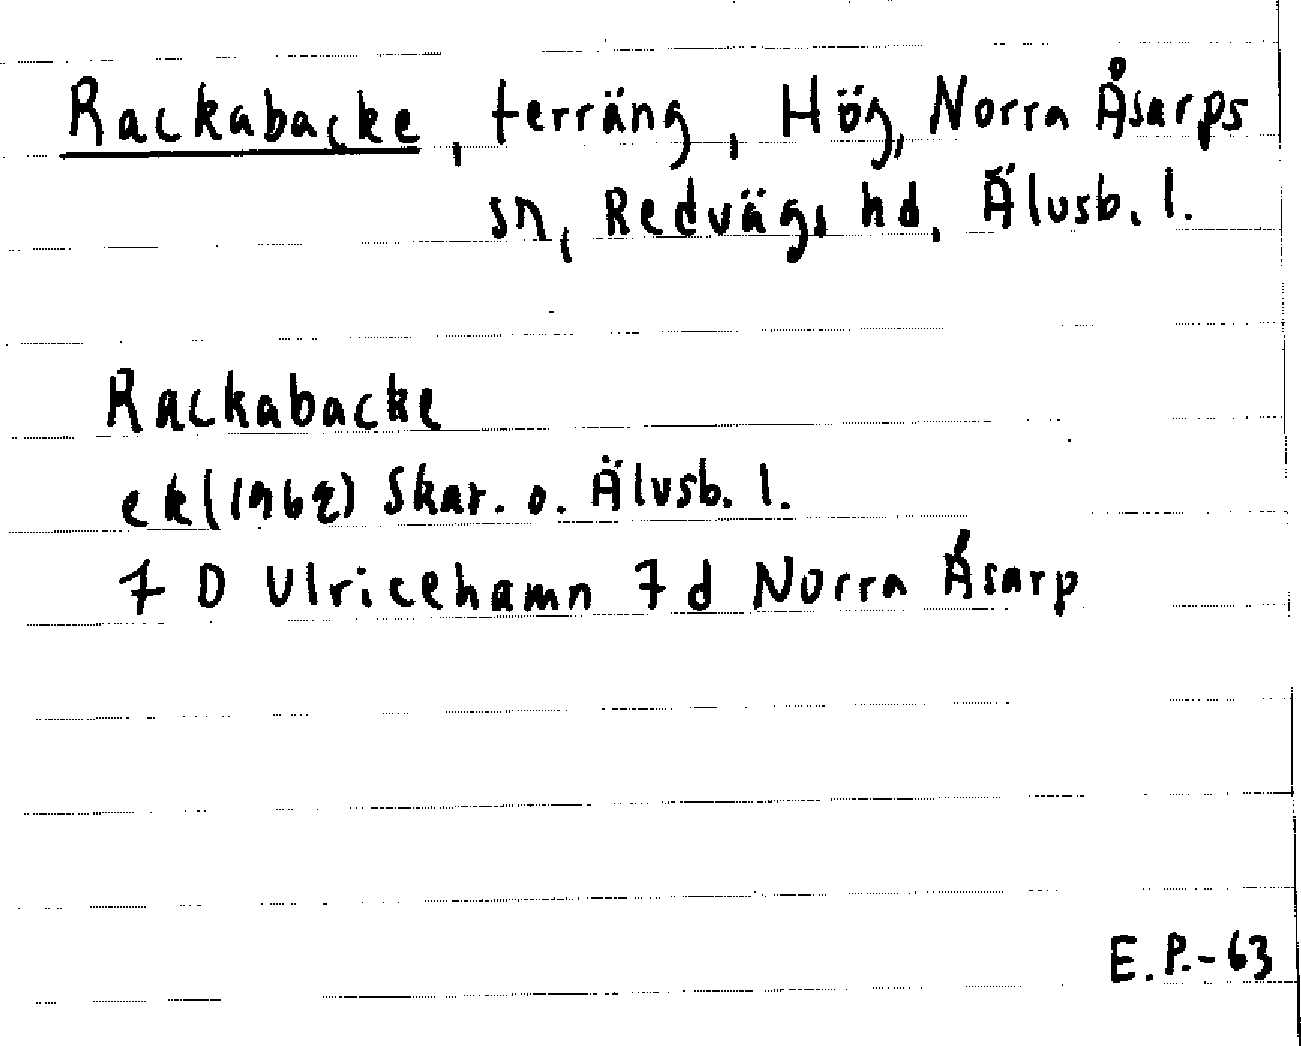 Rackabacke, terräng, Hög, Norra Åsarps
sn, Redvägs hd, Älvsb. l.
Rackabacke
ek (1962) Skar. o. Älvsb. l.
7 D Ulricehamn 7 d Norra Åsarp
E.P.-63